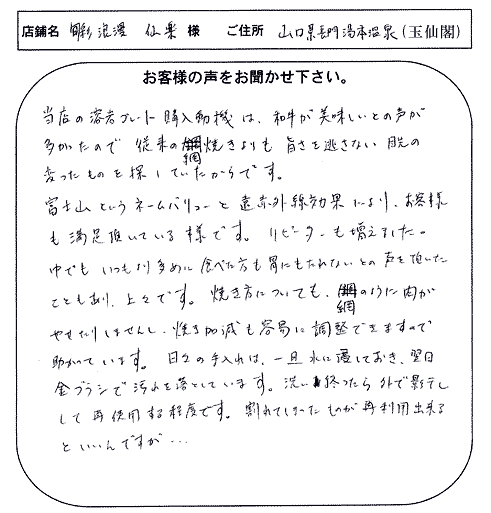 店舗名 彫彩浪漫 仙楽 様 ご住所 山口県長門湯本温泉(玉仙閣)
お客様の声をお聞かせ下さい。
当店の溶岩プレート購入動機は、和牛が美味しいとの声が
多かったので 従来の網焼きよりも 旨さを逃さない 目先の
変ったものを探していたからです。
富士山というネームバリューと遠赤外線効果により、お客様
も満足頂いている様です。リピーターも増えました。
中でも いつもより多めに食べた方も胃にもたれないとの声を頂いた
こともあり、上々です。焼き方についても、網のように肉が
やせたりしませんし、焼き加減も容易に調整できますので
助かっています。日々の手入れは、一旦水に浸しておき、翌日
金ブラシで汚れを落としています。洗い終ったら外で影干し
して再使用する程度です。割れてしまったものが再利用出来る
といいんですが…